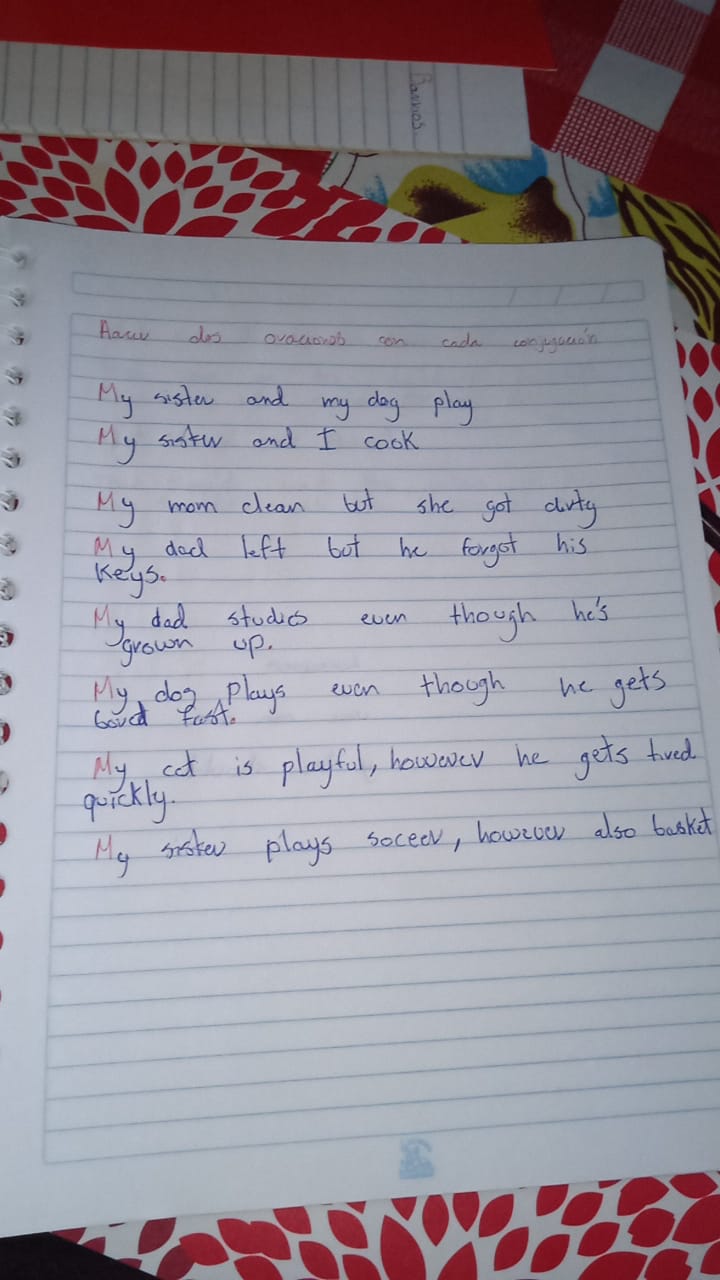 Barrios
Hacer dos oraciones con cada conjugación
My sister and my dog play
My sister and I cook
My mom clean but she got dirty
My dad left but he forgot his
keys.
My dad studies even though he's
grown up.
My dog plays even though he gets
bored fast.
My cat is playful, however he gets tired
quickly.
My sister plays soceer, however also basket